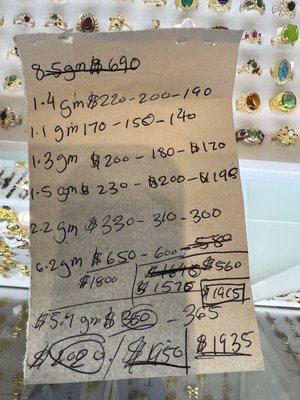 8.5gm $690
1.4 gm $220-200-190
1.1 gm 170-150-140
1.3gm $200-180-$170
1.5gm $230-$200-$195
2.2gm $330-310-300
6.2gm $650-600-580
$1800 $1610 $560
$1570 $1915
$5.7 gm $380-365
$2020/$1950 $1935